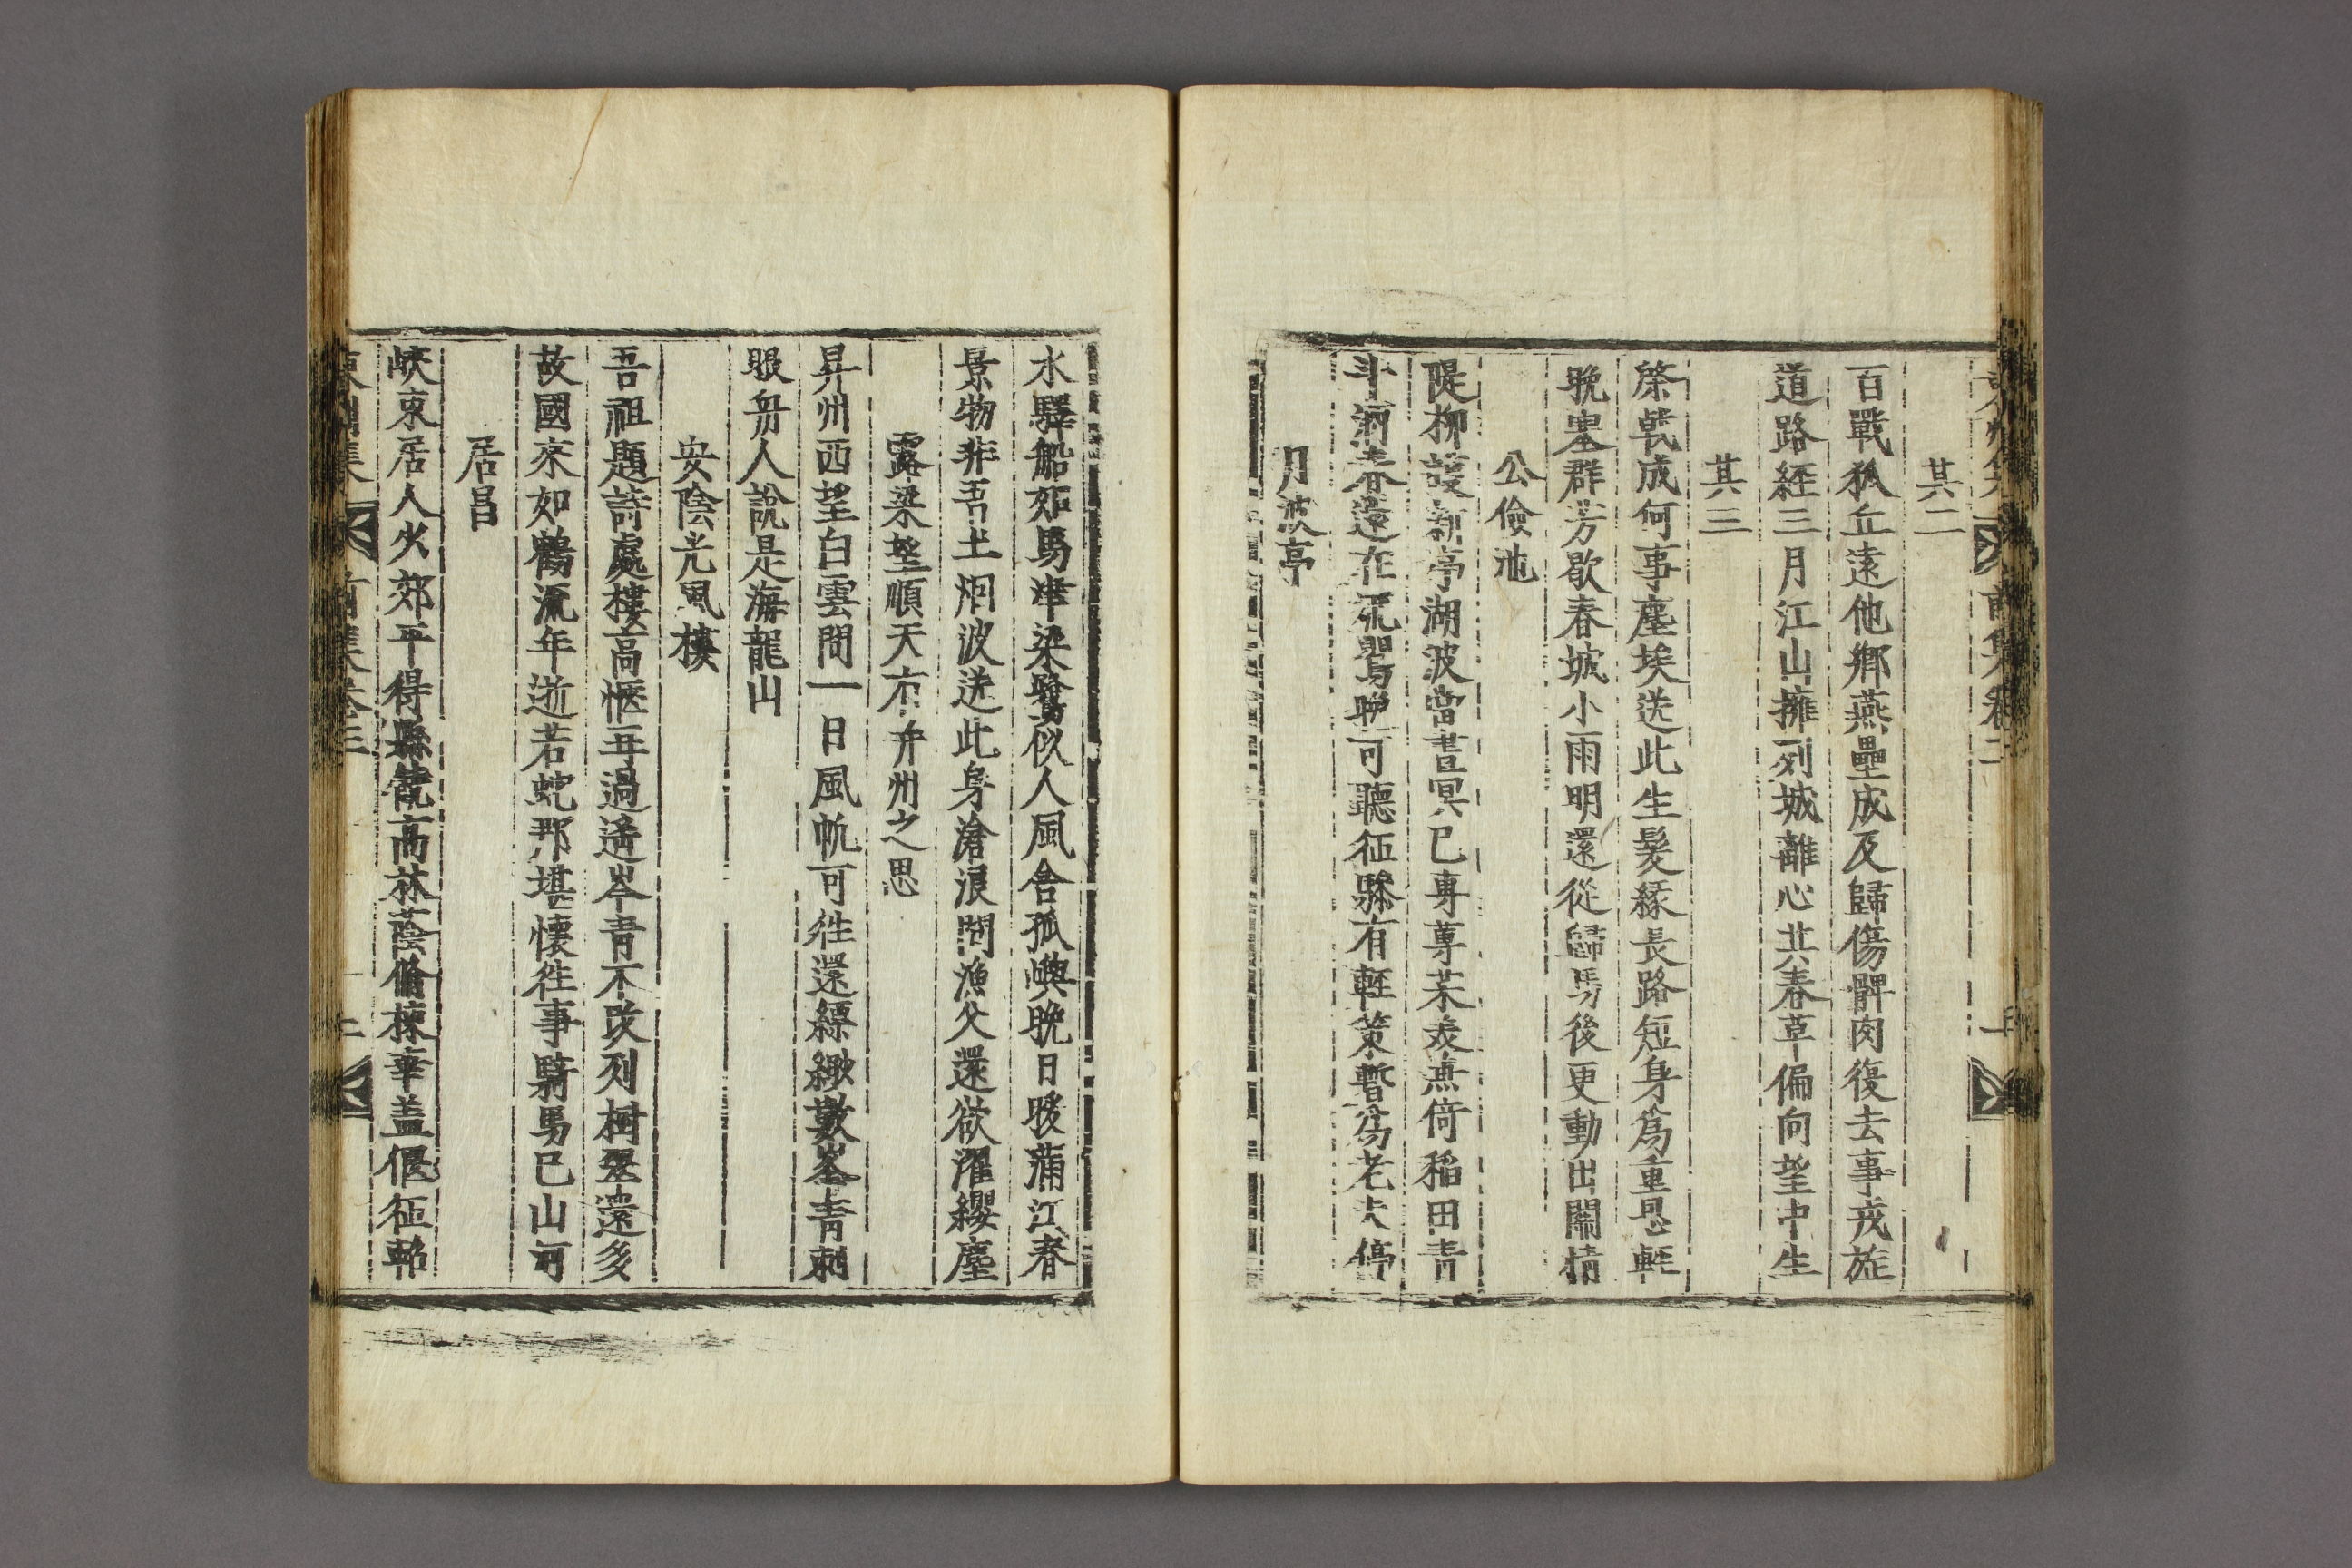 其二
百戰狐丘遠他鄕燕壘成及歸傷髀肉復去事戎旌
道路經三月江山擁列城離心共春草偏向望中生
其三
棨戟成何事塵埃送此生髮緣長路短身爲重恩輕
晩塞群芳歇春城小雨明還從歸馬後更動出關情
公儉池
隄柳護新亭湖波當晝冥已專蓴芣羨燕倚稻田靑
斗酒春還在鶯晩可聽征驂有輕策暫爲老夫停
月波亭
水驛船如馬津梁鷺似人風舍孤嶼晩日暖蒲江春
景物非吾土烟波送此身滄浪問漁父還欲濯纓塵
露梁望順天亦幷州之思
昇州西望白雲間一日風帆可往還縹緲數峯靑刺
眼舟人說是海龍山
安陰光風樓
吾祖題詩處樓高愜再過遙岑靑不改列樹翠還多
故國來如鶴流年逝若蛇那堪懷往事騎馬已山河
居昌
峽束居人少郊平得縣甍高林蔭脩棟華盖偃征軺
東州集 前集卷三